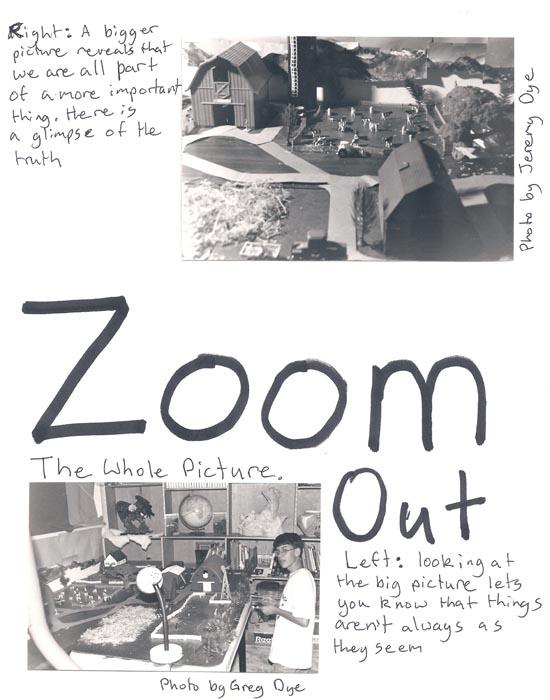 Right: A bigger
picture reveals that
we are all part
of a more important
thing. Here is
a glimpse of the
truth
Photo by Jeremy Dye
Zoom
Out
The Whole Picture.
Left: looking at
the big picture lets
you know that things
aren't always as
they seem
Photo by Greg Dye